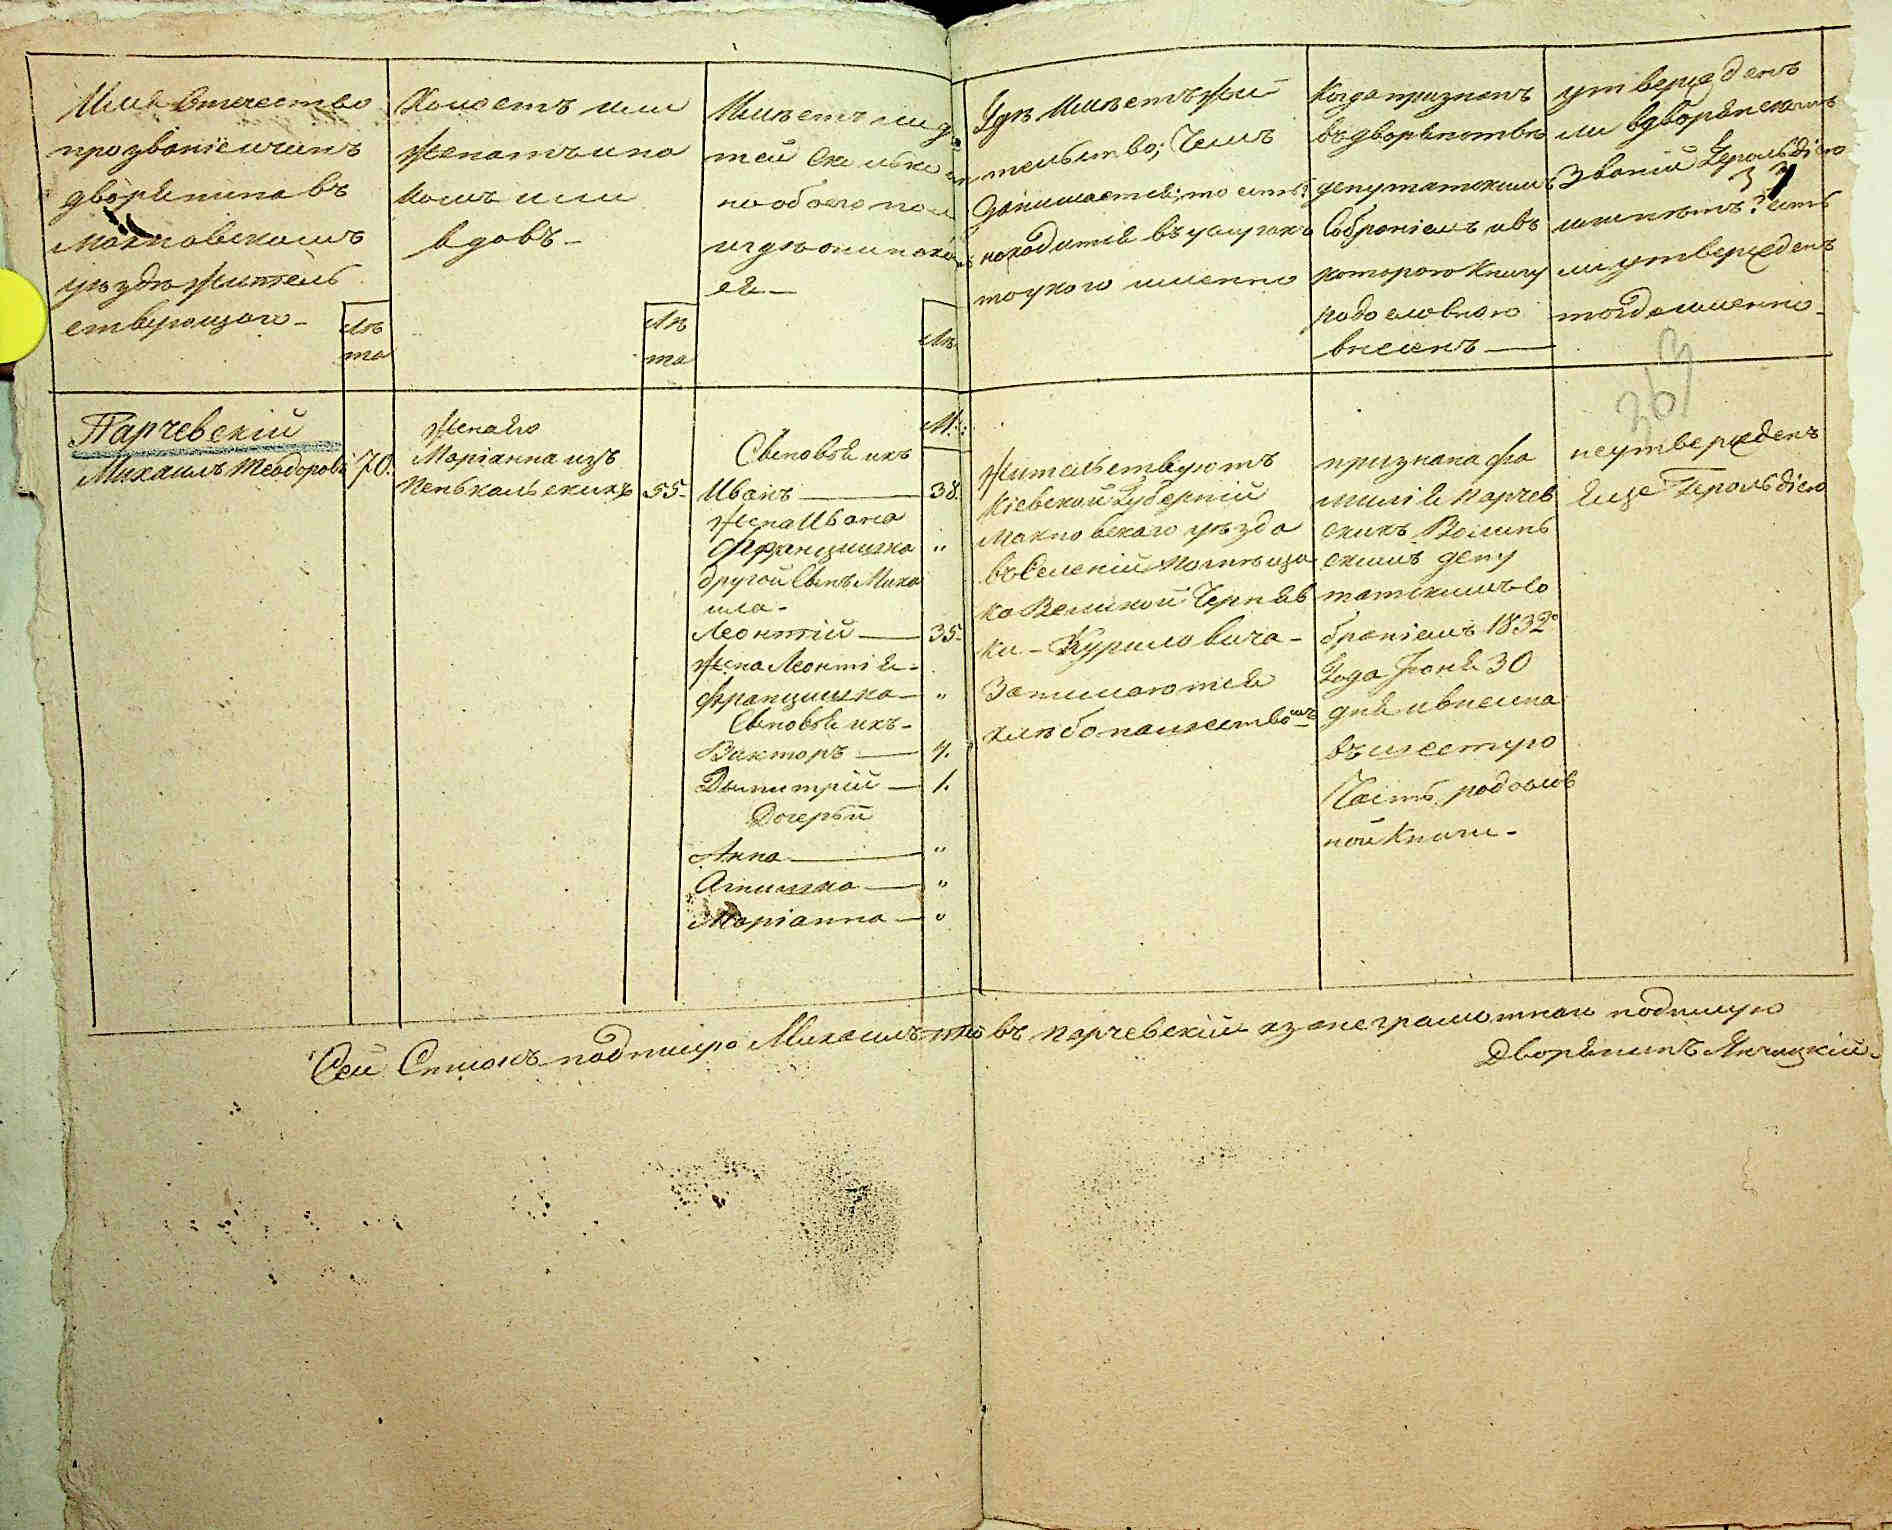 Имя Отчество
прозваніе и чинъ
дворянина въ
Махновскомъ
уездѣ жительствующаго
Лѣта
Холостъ или
женатъ и на
комъ или
вдовъ
Лѣта
Имѣетъ ли дѣ
тей сколько
обоего пола
и гдѣ они нахо
ся
Лѣ
Гдѣ Имѣетъ жи
тельство; Чемъ
занимается; то есть:
находится въ услугахъ
то у кого именно
Когда признанъ
въ дворянствѣ
депутатскимъ
Собраніемъ и въ
которою Книгу
родословною
внесенъ
утвержденъ
ли въ дворянскомъ
Званіи Герольдіею
37
или нѣтъ? есть
ли утвержденъ
то когда именно
363
Парчевскій
Михаилъ Теодоровъ 70.
Жена Его
Маріанна изъ
Пенькальскихъ 55.
М.:
Сыновья ихъ
Иванъ 38.
Жена Ивана
Францишка "
другой Сынъ Миха
ила
Леонтій 35.
Жена Леонтія
Францишка "
Сыновья ихъ
Викторъ 7.
Дымитрій 1.
Дочерьи
Анна "
Агнишка "
Маріанна "
Жительствуютъ
Кіевской Губерніи
Махновскаго уѣзда
въ Селеніи помѣщи
ка Великой Черняв
ки Куриловича
Занимаются
хлѣбопашествомъ
признана фа
милія Парчев
скихъ Волынь
скимъ депу
татскимъ со
браніемъ 1832го
Года Іюня 30
дня и внесена
въ шестую
Часть родослов
ной Книги
неутвержденъ
Еще Герольдіею
Сей Списокъ подпишую Михаилъ Парчевскій а за неграмотнаго подпишую
Дворянинъ Янчицкій